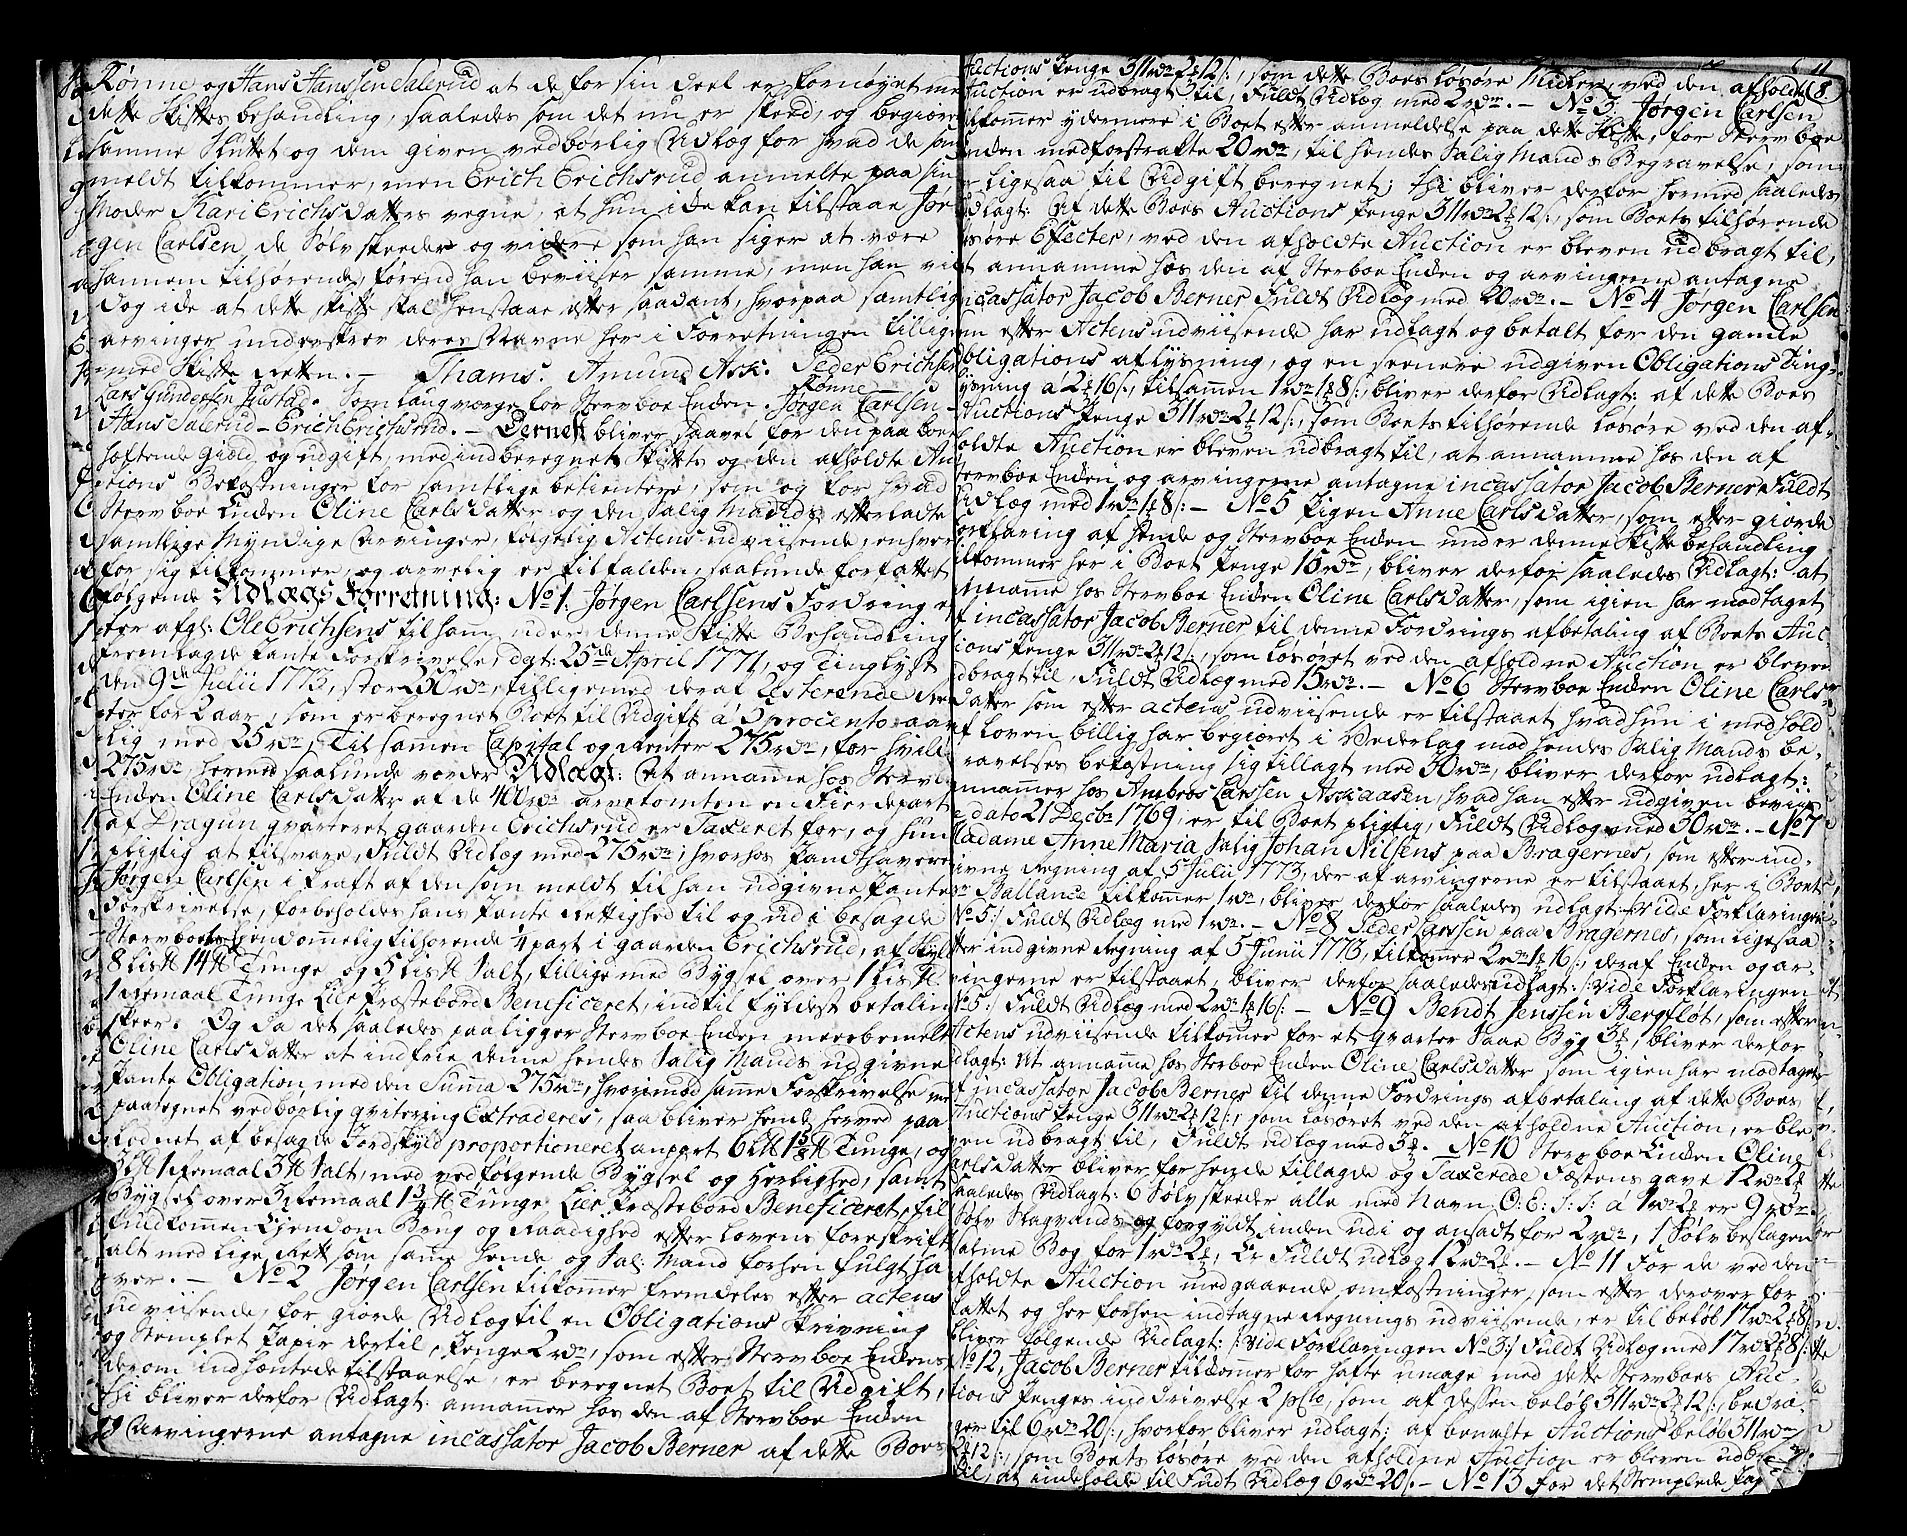 Rønne og Hans Hanssen Salerud at de for sin deel er fornøyet med
dette Skiftes behandling, saaledes som det nu er skeed, og begiære
samme Sluttet og dem given vedbørlig Udlæg for hvad de som
meldt tilkommer, men Erich Erichsrud anmelte paa sin
Moder Kari Erichsdatters vegne, at hun ide kan tilstaae Jør-
gen Carlsen de Sølv skeeder og videre som han siger at være
hannem tilhørende, førend han beviiser samme, men han vil
dog ide at dette skifte skal henstaae efter saadant, hvorpaa samtlig
arvinger underskrev deres Navne her i Forretningen tillige
med Skifte Retten. — Thams. Amund Ask. Peder Erichsen
Rønne
Lars Gundersen Gustad. Som laugværge for Stervboe Enden. Jørgen Carlsen —
Hans Salerud — Erich Erichsrud. — Dernest bliver saavel for den paa boet
heftende Giæld og udgift, med indberegnet Skiftets og den afholdte Au-
ctions Bekostninger for samtlige betientere, som og for hvad
Stervboe Enden Oline Carlsdatter og den Salig Mands efterladte
samtlige Myndige Arvinger, følgelig Actens udviisende, enhver
for sig tilkommer, og arvelig er tilfalden, saalunde forfattet
følgende Udlægs Forretning: No 1: Jørgen Carlsens Fordring ef-
ter afgl: Ole Erichsens til ham under denne Skifte Behandling
fremlagde Pante Forskrivelse, dat: 25de April 1771, og Tinglyst
den 9de Julii 1773, stor 250 rdr, tilligemed deraf Resterende Ren-
ter for 2 aar, som er beregnet Boet til Udgift á 5 procento aar-
lig med 25 rdr, Tilsammen Capital og Renter 275 rdr, for hvilke
275 rdr, hermed saalunde vorder Udlagt: At annamme hos Stervboe
Enden Oline Carlsdatter af de 400 rdr arvetomten en Fierdepart
af Dragun qvarteret gaarden Erichsrud er Taxeret for, og hun
pligtig at tilsvare, Fuldt Udlæg med 275 rdr; hvorhos Panthavere
Jørgen Carlsen i kraft af den som meldt til han udgivne Pante
Forskrivelse, forbeholdes hans Pante Rettighed til og udi besagde
Stervboets Ejendommelig tilhørende 1/4 part i gaarden Erichsrud, af Skyld
8 Lis℔ 14 ℔ Tunge og 5 Lis℔ Salt, tillige med Bygsel over 1 Lis℔
1 Remaal Tunge Lier Præstebord Beneficeret, indtil fyldest betaling
skeer. Og da det saaledes paaligger Stervboe Enden meerbemelte
Oline Carlsdatter at indfrie denne hendes Salig Mands udgivne
Pante Obligation med den Summa 275 rdr, hvorimod samme Forskrivelse med
paategnet vedbørlig qvitering Extraderes, saa bliver hende herved paa
Regnet af besagde Jordskyld proportioneret anpart
1 Remaal 3 ℔ Salt, med vedfølgende Bygsel og Herlighed, samt
Bygsel over 3 Remaal 1 3/4 ℔ Tunge Lier Præstebord Beneficeret, til
fuldkommen Ejendom Brug og Raadighed efter Lovens foreskrift
alt med lige Rett som samme hende og Sal: Mand forhen fulgt ha-
ver. — No 2 Jørgen Carlsen tilkommer fremdeles efter actens
udviisende, for giorde Udlæg til en Obligations Skrivning
og Stemplet Papir dertil, Penge 2 rdr, som efter Stervboe Endens
derom indhæntede tilstaaelse, er beregnet Boet til Udgift,
thi bliver derfor Udlagt: annammer hos den af Stervboe Enden
og Arvingerne antagne incassator Jacob Berner af dette Boes
11
8
Auctions Penge 311 rdr 2 ort 12 s:, som dette Boes løsøre Midler ved den afholdte
Auction er udbragt til, Fuldt Udlæg med 2 rdr. — No 3 Jørgen Carlsen
tilkommer ydermere i Boet efter anmeldelse paa dette Skifte, for Stervboe
Enden medforstrakte 20 rdr, til hendes Salig Mands Begravelse, som
er ligesaa til Udgift beregnet; thi bliver derfor hermed saaledes
udlagt: Af dette Boes Auctions Penge 311 rdr 2 ort 12 s:, som Boets tilhørende
løsøre Effecter, ved den afholdte Auction er bleven udbragt til,
at annamme hos den af Stervboe Enden og arvingerne antagne
incassator Jacob Berner Fuldt Udlæg med 20 rdr. — No 4 Jørgen Carlsen
som efter Actens udviisende har udlagt og betalt for den gamle
obligations aflysning, og en seenere udgiven Obligations Ting-
lysning á 2 ort 16 s:, tilsammen 1 rdr 1 ort 8 s:, bliver derfor Udlagt: af dette Boes
Auctions Penge 311 rdr 2 ort 12 s:, som Boets tilhørende løsøre ved den af-
holdte Auction er bleven udbragt til, at annamme hos den af
Stervboe Enden og arvingerne antagne incassator Jacob Berner Fuldt
Udlæg med 1 rdr 1 ort 8 s: — No 5 Pigen Anne Carlsdatter, som efter giorde
forklaring af hende og Stervboe Enden under denne Skifte behandling
tilkommer her i Boet Penge 15 rdr, bliver derfor saaledes Udlagt: at
annamme hos Stervboe Enden Oline Carlsdatter, som igien har modtaget
af incassator Jacob Berner til denne Fordrings afbetaling af Boets Auc-
tions Penge 311 rdr 2 ort 12 s:, som løsøret ved den afholdne Auction er bleven
udbragt til, Fuldt Udlæg med 15 rdr. — No 6 Stervboe Enden Oline Carls-
datter som efter actens udviisende er tilstaaet hvad hun i medhold
af Loven billig har begiæret i Vederlag mod hendes Salig Mands be-
gravelses bekostning sig tillagt med 30 rdr, bliver derfor udlagt:
annammer hos Ambros Larssen Askaasen, hvad han efter udgiven beviis
de dato 21 Decbr 1769, er til Boet pligtig, Fuldt Udlæg med 30 rdr. — No 7
Madame Anne Maria Salig Johan Nilsens paa Bragernes, som efter ind-
givne Regning af 5 Julii 1773, der af arvingerne er tilstaaet, her i Boet
en Ballance tilkommer 1 rdr, bliver derfor saaledes udlagt: /: vide Forklaringen
No 5:/ Fuldt Udlæg med 1 rdr. — No 8 Peder Larssen paa Bragernes, som ligesaa
efter indgivne Regning af 5 Junii 1773, tilkommer 2 rdr 1 ort 16 s:, deraf Enden og ar-
vingerne er tilstaaet, bliver derfor saaledes udlagt: /: vide Forklaringen
No 5:/ Fuldt Udlæg med 2 rdr 1 ort 16 s: — No 9 Bendt Jenssen Bergfløt, som efter
Actens udviisende tilkommer for et qvarter Saae Byg 3 ort, bliver derfor
udlagt: At annamme hos Stervboe Enden Oline Carlsdatter som igien har modtaget
af incassator Jacob Berner til denne Fordrings afbetaling af dette Boes
Auctions Penge 311 rdr 2 ort 12 s:, som løsøret ved den afholdne Auction, er ble-
ven udbragt til, Fuldt udlæg med 3 ort. — No 10 Stervboe Enden Oline
Carlsdatter bliver for hende tillagde og Taxerede Fæstens gave 12 rdr 2 ort
saaledes Udlagt: 6 Sølv skeeder alle med Navn O: E: S: S: á 1 rdr 2 ort er 9 rdr.
Sølv forgyldt inden udi og ansadt for 2 rdr, 1 Sølv beslagen
Psalme Bog for 1 rdr 2 ort, Er Fuldt udlæg 12 rdr 2 ort. — No 11 For de ved den
afholdte Auction medgaaende omkostninger, som efter derover for-
fattet og her forhen indtagne Regnings udviisende, er til beløb 17 rdr 2 ort 8 s:
bliver følgende Udlagt: /: vide Forklaringen No 3:/ Fuldt Udlæg med 17 rdr 2 ort 8 s:
No 12, Jacob Berner tilkommer for hafte umage med dette Stervboes Auc-
tions Penges inddrivelse 2 pCto, som af dessen beløb 311 rdr 2 ort 12 s:, bedra-
ger til 6 rdr 20 s:, hvorfor bliver udlagt: af benævnte Auctions beløb 311 rdr
2 ort 12 s:, som Boets løsøre ved den afholdne Auction er bleven udbragt
til, at indeholde til Fuldt Udlæg 6 rdr 20 s. — No 13 For det Stemplede Pap-